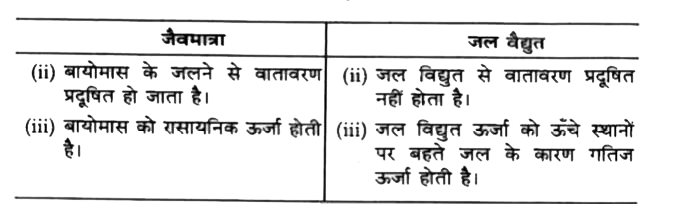 जैवमात्रा
जल वैद्युत
(ii) बायोमास के जलने से वातावरण
प्रदूषित हो जाता है।
(iii) बायोमास को रासायनिक ऊर्जा होती
है।
(ii) जल विद्युत से वातावरण प्रदूषित
नहीं होता है।
(iii) जल विद्युत ऊर्जा को ऊँचे स्थानों
पर बहते जल के कारण गतिज
ऊर्जा होती है।